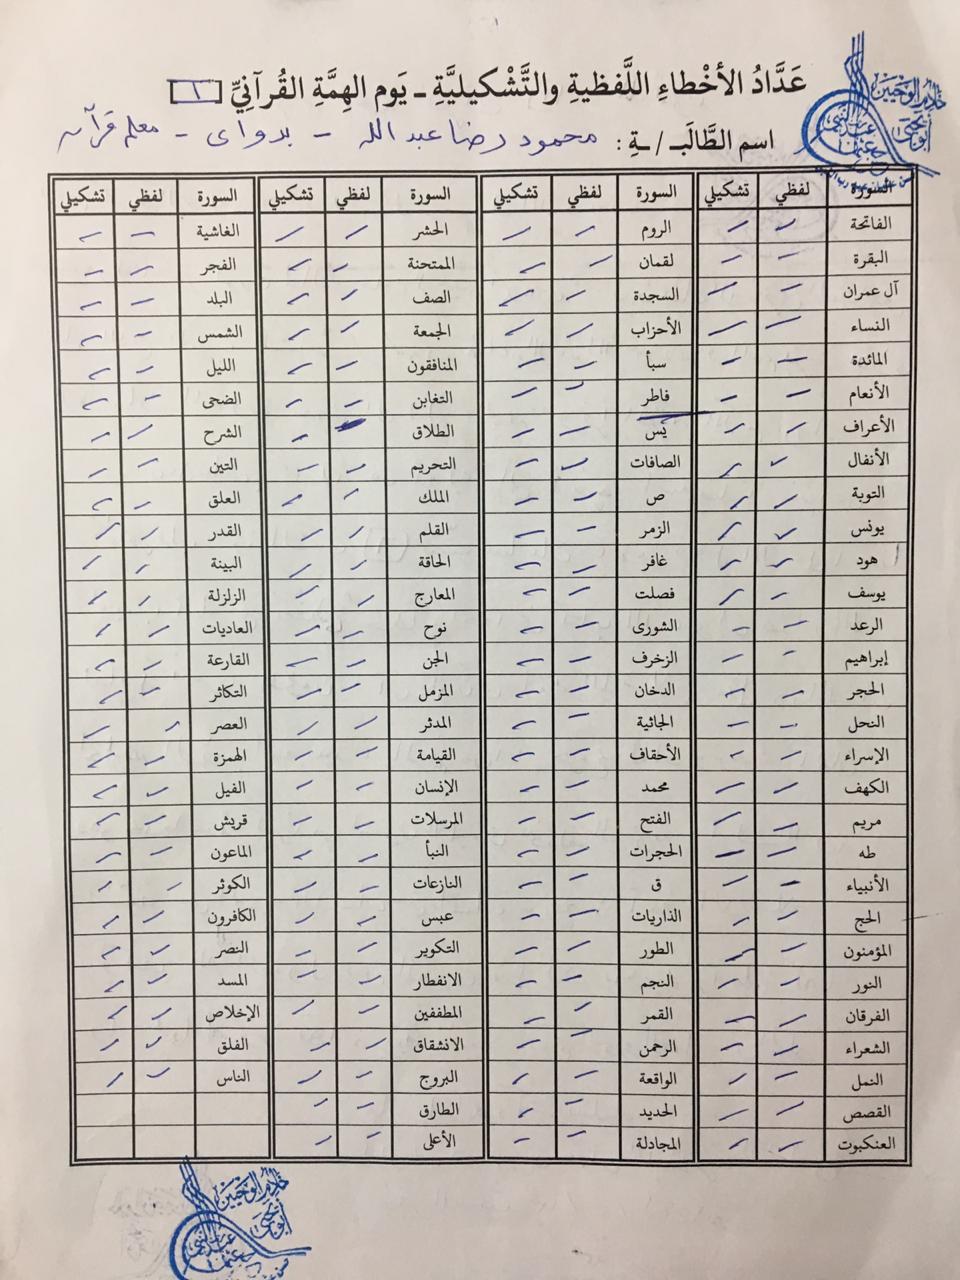 عَدَّادُ الأَخْطَاءِ اللَّفظِيةِ والتَّشْكيليَّةِ ـ يَوم الهِمَّةِ القُرآنيِّ [١]
اسم الطَّالَبـ / ـةِ : محمود رضا عبد الله - بدواى - معلم قرآن
السورة لفظي تشكيلي السورة لفظي تشكيلي السورة لفظي تشكيلي السورة لفظي تشكيلي
الفاتحة الروم الحشر الغاشية
البقرة لقمان الممتحنة الفجر
آل عمران السجدة الصف البلد
النساء الأحزاب الجمعة الشمس
المائدة سبأ المنافقون الليل
الأنعام فاطر التغابن الضحى
الأعراف يس الطلاق الشرح
الأنفال الصافات التحريم التين
التوبة ص الملك العلق
يونس الزمر القلم القدر
هود غافر الحاقة البينة
يوسف فصلت المعارج الزلزلة
الرعد الشورى نوح العاديات
إبراهيم الزخرف الجن القارعة
الحجر الدخان المزمل التكاثر
النحل الجاثية المدثر العصر
الإسراء الأحقاف القيامة الهمزة
الكهف محمد الإنسان الفيل
مريم الفتح المرسلات قريش
طه الحجرات النبأ الماعون
الأنبياء ق النازعات الكوثر
الحج الذاريات عبس الكافرون
المؤمنون الطور التكوير النصر
النور النجم الانفطار المسد
الفرقان القمر المطففين الإخلاص
الشعراء الرحمن الانشقاق الفلق
النمل الواقعة البروج الناس
القصص الحديد الطارق
العنكبوت المجادلة الأعلى